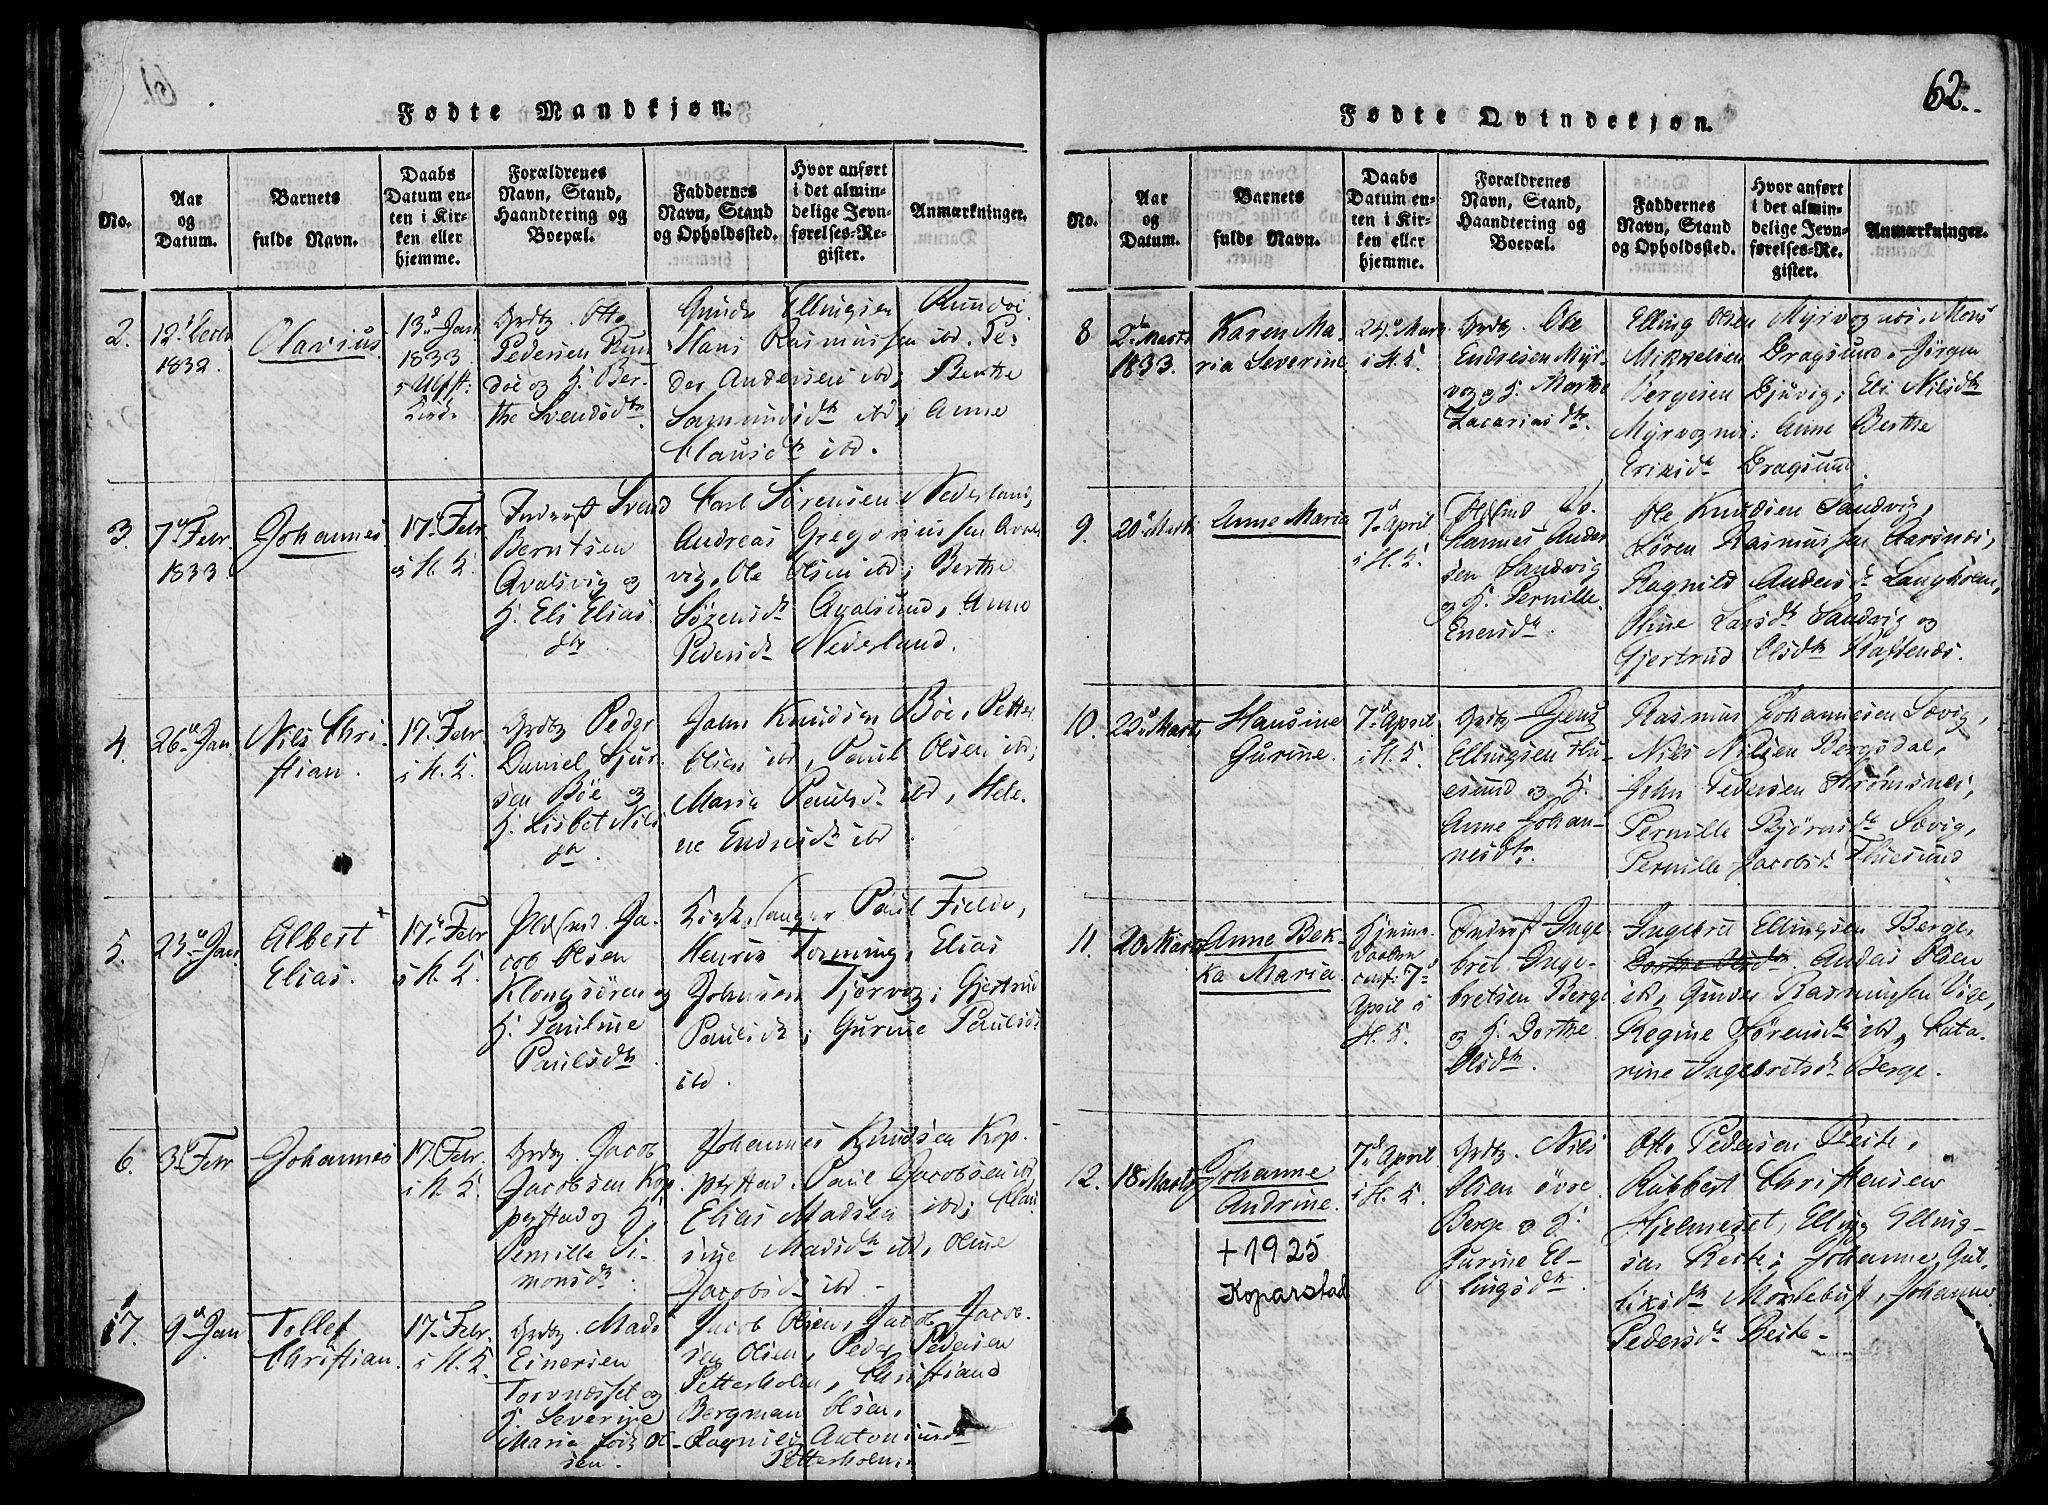 Fødte Mandkjøn.
No.
Aar
og
Datum.
Barnets
fulde Navn.
Daabs
Datum en-
ten i Kir-
ken eller
hjemme.
Forældrenes
Navn, Stand,
Haandtering og
Boepæl.
Faddernes
Navn, Stand
og Opholdssted.
Hvor anført
i det almin-
delige Jevn-
førelses-Re-
gister.
Anmærkninger.
2.
1832.
Olavius
13d Jan
1833
Grdbr. Otto
Pedersen Run-
döe og H. Ber-
the Svendsdtr
Ellingsen Rundöe
Hans Rasmussen ibd. Pe-
der Andersen ibd; Berthe
Sagmundsdtr ibd, Anne
Clausdtr ibd.
3.
7d Febr.
1833
Johannes
17d Febr.
i H. K.
Inderst Svend
Berntsen
Avalsvig og
H. Eli Elias
dtr
Carl Sørensen Nederland,
Andreas Gregoriussen Avals
vig, Ole Olsen ibd; Berthe
Sörensdtr Avalsund, Anne
Pedersdtr Nederland.
4.
26d Jan
Nils Chri-
stian.
17d Febr.
i H. K.
Grdbr Peder
Daniel Sjur-
sen Böe og
H. Lisbet Nils
dtr.
John Knudsen Böe, Petter
Olsen ibd, Paul Olsen ibd;
Maria Paulsdtr ibd, Hele-
ne Endresdtr ibd.
5.
23d Jan
Albert +
Elias.
17d Febr
i H. K.
Ja-
cob Olsen
Klongsören og
H. Pauline
Paulsdtr
Kirkesanger Paul Fielde,
Henrik Torning, Elias
Johnsen Tjørvog; Gjertrud
Paulsdtr; Gurine Paulsdtr
ibd.
6.
3d Febr
Johannes
17d Febr.
i H. K.
Grdbr. Jacob
Jacobsen Kop-
perstad og H.
Pernille Si-
monsdtr.
Johannes Knudsen Kop-
perstad. Paul Jacobsen ibd
Elias Madsen ibd; Clau-
sine Madsdtr ibd, Oline
Jacobsdtr ibd -
7.
9d Jan
Tollef
Christian.
17d Febr.
i H. K.
Grdbr. Mads
Einersen
Torvnæsset og
H. Severine
Maria Ol-
sen.
Jacob Olsen, Jacob Jacob-
sen Olsen, Peder Pedersen
Petterholm, Christiand
Bergman Olsen,
Ragnild Antoniusdtr
Petterholm.
62.
Fødte Qvindekjøn.
No.
Aar
og
Datum.
Barnets
fulde Navn.
Daabs
Datum en-
ten i Kir-
ken eller
hjemme.
Forældrenes
Navn, Stand,
Haandtering og
Boepæl.
Faddernes
Navn, Stand
og Opholdssted.
Hvor anført
i det almin-
delige Jevn-
førelses-Re-
gister.
Anmærkninger.
8
2den Marts
1833.
Karen Ma-
ria Severine
i H. K.
Grdbr. Ole
Endresen Myr-
vog og H. Marthe
Zacariasdtr.
Elling Olsen Myrvognes, Mons
Mikkelsen Dragsund, Jörgen
Bergesen Djuvig; Eli Nilsdtr
Myrvognes; Anne Berthe
Eriksdtr Dragsund.
9.
20d Marts
Anne Maria
7d April
i H. K.
Huusmd Jo-
hannes Ander-
sen Sandvig
og H. Pernille
Enersdtr.
Ole Knudsen Sandvig,
Sören Rasmussen Aarsnes,
Ragnild Andersdtr Langholm,
Oline Larsdtr Sandvig og
Gjertrud Olsdtr Haftenes.
10.
22d Marts
Hansine
Gurine.
7d April
i H. K.
Grdbr Jens
Ellingsen Thu-
esund og H.
Anne Johan-
nesdtr.
Rasmus Johannesen Sævig,
Nils Nilsen Bergsdal,
John Pedersen Strömsnes,
Pernille Björnsdtr Sævig,
Pernille Jacobsdtr Thuesund
11.
20 Marts
Anne Bek-
ka Maria.
Hjemme-
døbt
conf: 7d
April i
H. K.
Inderst Inge-
bret Inge-
bretsen Berge
og H. Dorthe
Olsdtr.
Ingebret Ellingsen Berge,
Dorthe Olsdtr. Anders Olsen
ibd, Gunder Rasmussen Vige,
Regine Sörensdtr ibd, Cata-
rine Ingebretsdtr Berge.
12.
18 Marts
Johanne
Andrine.
+ 1925
Koparstad
7d April
i H. K.
Grdbr. Nils
Olsen övre
Berge og H.
Gurine El-
lingsdtr.
Otto Pedersen Reite,
Rubbert Christensen
Hjelmeset, Elling Elling-
sen Reite; Johanne Gul-
liksdtr Möltebust, Johanne
Pedersdtr Reite -